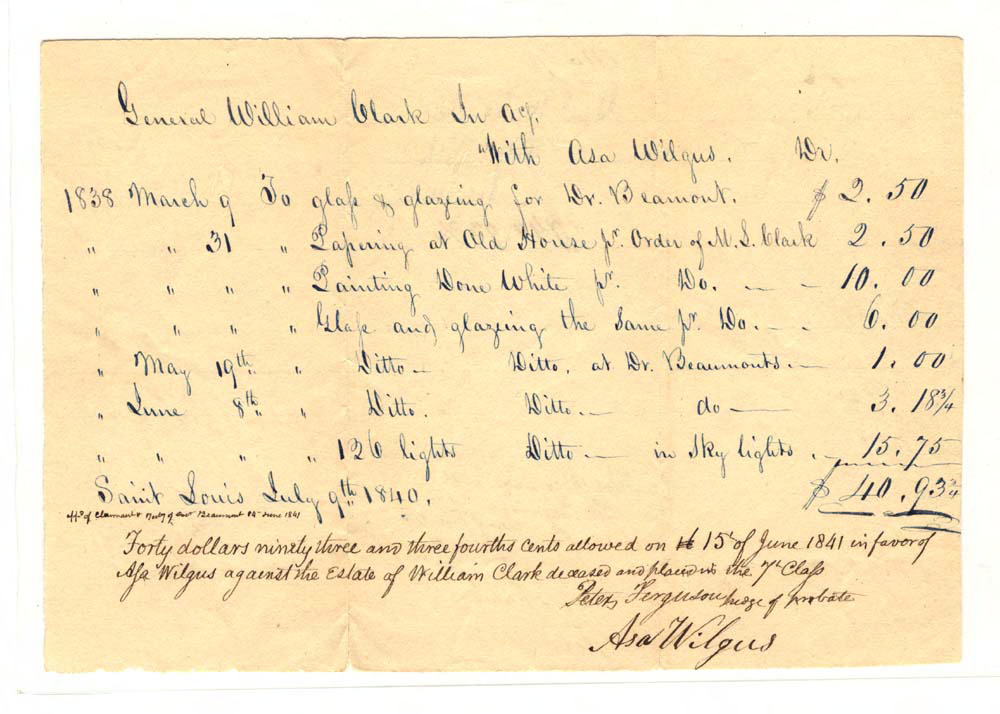 General William Clark In acy.
"With Asa Wilgus. Dr.
1838 March 9 To glass & glazeing for Dr. Beamont. $ 2.50
" " 31 " Papering at Old House pr. Order of M. L. Clark 2.50
" " " " Painting Done White pr. Do. — - 10.00
" " " " Glass and glazeing the Same pr. Do. - - 6.00
" May 19th " Ditto — Ditto. at Dr. Beaumonts. — 1.00
" June 8th " Ditto. Ditto. — do — 3.18¾
" " " " 126 lights Ditto — in Sky lights. - 15.75
Saint Louis July 9th 1840. $ 40.93¾
of Claimant & Beaumont 14 June 1841
Forty dollars ninety three and three fourths cents allowed on 15th of June 1841 in favor of
Asa Wilgus against the Estate of William Clark deceased and placed in the 7th Class
Peter Ferguson Judge of probate
Asa Wilgus